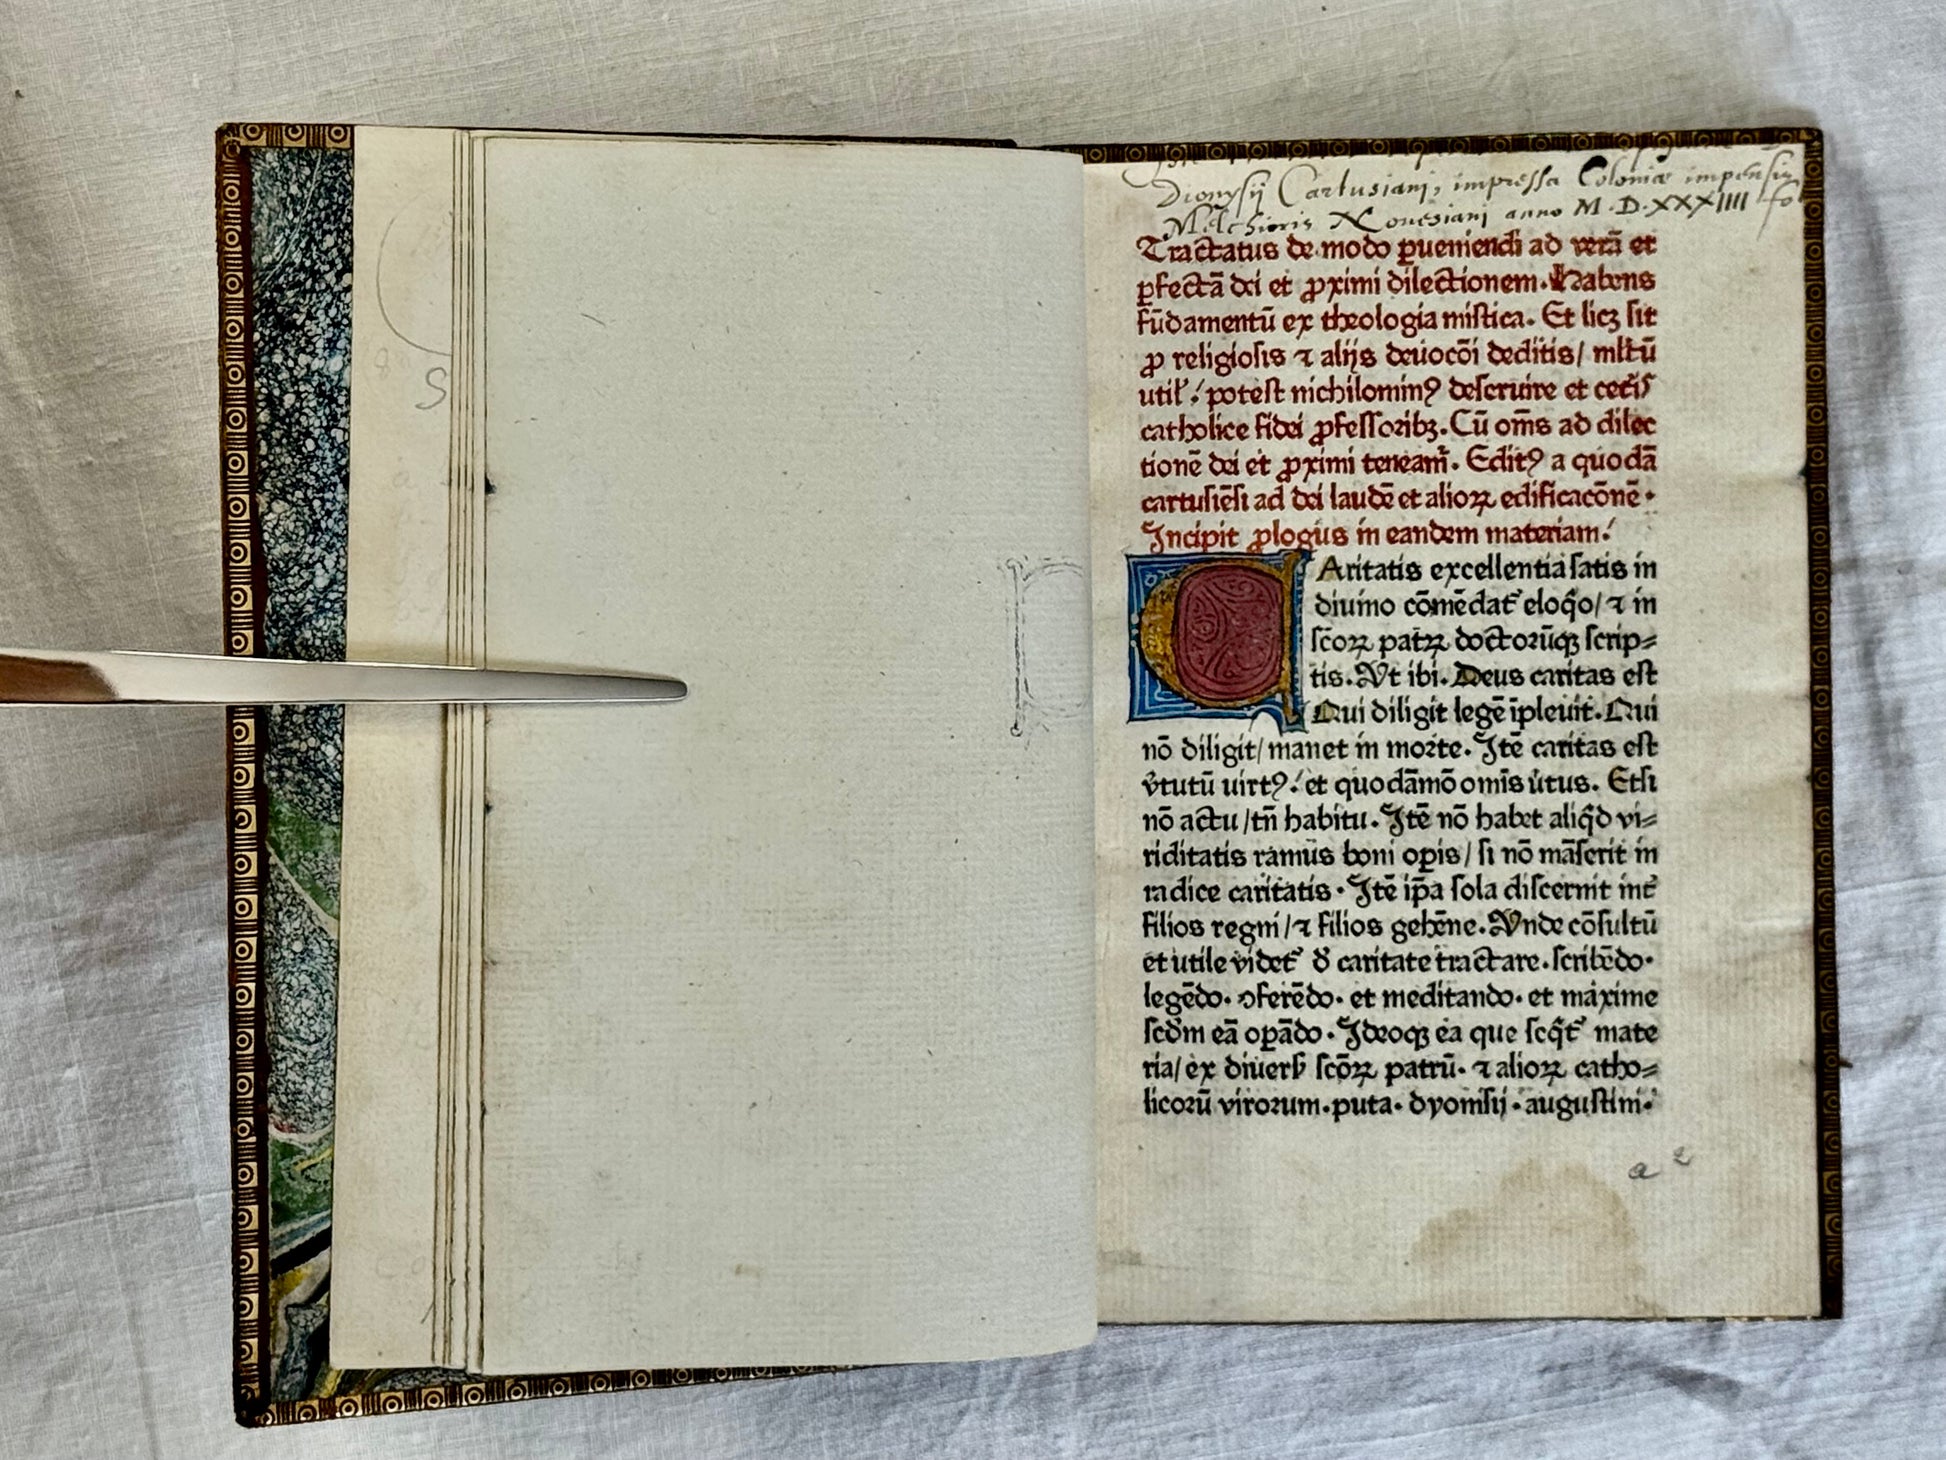 S
Dionysij Cartusiani, impressa Coloniæ impensis
Melchioris Nouesiani anno M·D·XXXIIII fo
Tractatus de modo ꝑueniendi ad verā et
ꝑfectā dei et ꝓximi dilectionem. Habens
fūdamentū ex theologia mistica. Et licꝫ sit
ꝓ religiosis ⁊ alijs deuocōi deditis/ mltū
util̕ / potest nichilominꝰ deseruire et ceteris
catholice fidei ꝓfessoribꝫ. Cū om̄s ad dilec
tionē dei et ꝓximi teneam̄. Editꝰ a quodā
cartusiēsi ad dei laudē et alioꝝ edificacōnē.
Incipit ꝓlogus in eandem materiam.
CAritatis excellentia satis in
diuino cōmēdat᷑ eloq̊o/ ⁊ in
sc̄oꝝ patꝝ doctorūqꝫ scrip⸗
tis. Vt ibi. Deus caritas est
Qui diligit legē īpleuit. Qui
nō diligit/ manet in morte. Itē caritas est
v̓tutū uirtꝰ / et quodāmō omīs u̓tus. Etsi
nō actu /tn̄ habitu. Itē nō habet aliq̊d vi⸗
riditatis ramus boni opis/ si nō māserit in
radice caritatis. Itē ip̄a sola discernit int̓
filios regni/⁊ filios gehēne. Vnde cōsultū
et utile videt᷑ d̓ caritate tractare. scribēdo.
legēdo. ↄferēdo. et meditando. et maxime
scd̓m eā oꝑādo. Ideoqꝫ ea que seq̄t᷑ mate
ria/ ex diuers̓ sc̄oꝝ patrū. ⁊ alioꝝ catho⸗
licorū virorum. puta. dyonisij. augustini.
a 2